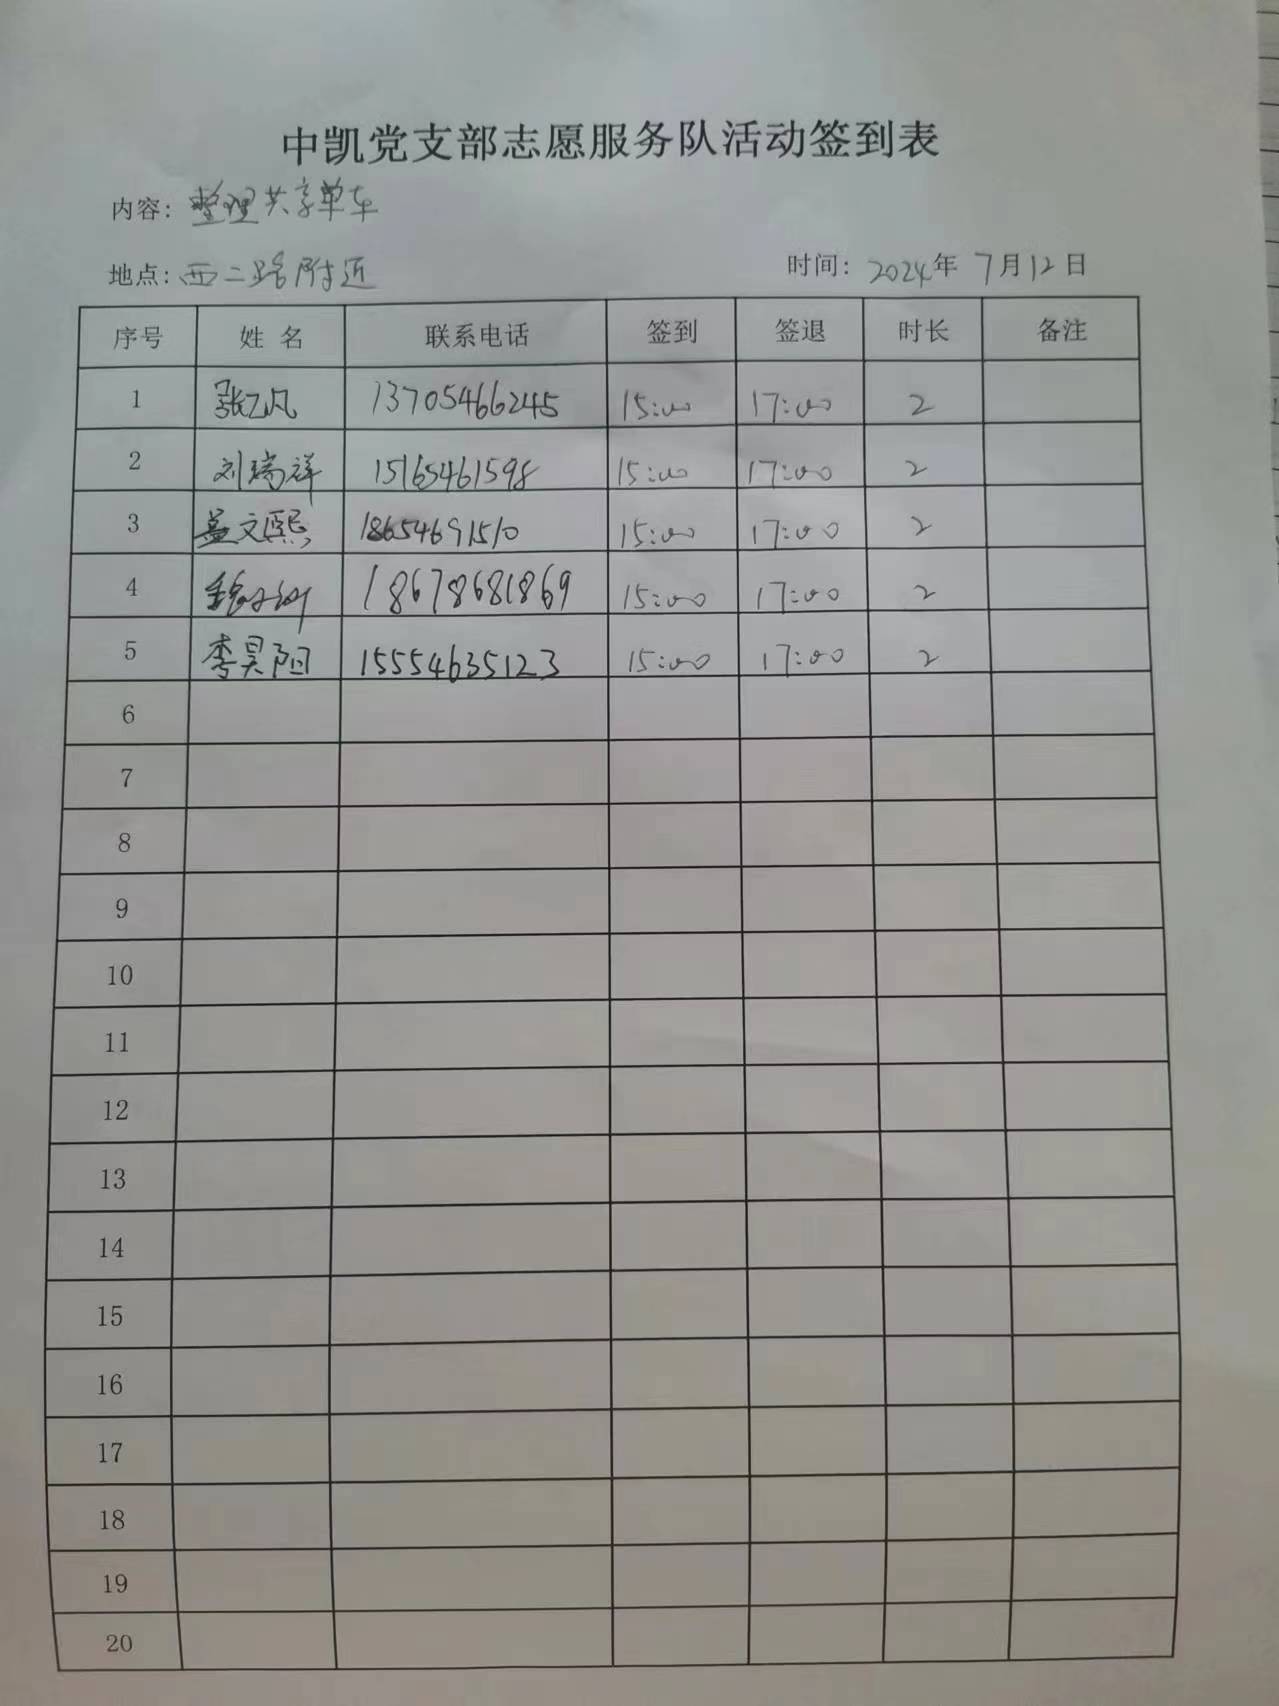 中凯党支部志愿服务队活动签到表
内容：整理共享单车
地点：西二路附近 时间：2024年 7月12日
序号 姓 名 联系电话 签到 签退 时长 备注
1 张乙凡 13705466245 15:00 17:00 2
2 刘瑞祥 15165461598 15:00 17:00 2
3 盖文熙 18654691510 15:00 17:00 2
4 18678681869 15:00 17:00 2
5 李昊阳 15554635123 15:00 17:00 2
6
7
8
9
10
11
12
13
14
15
16
17
18
19
20